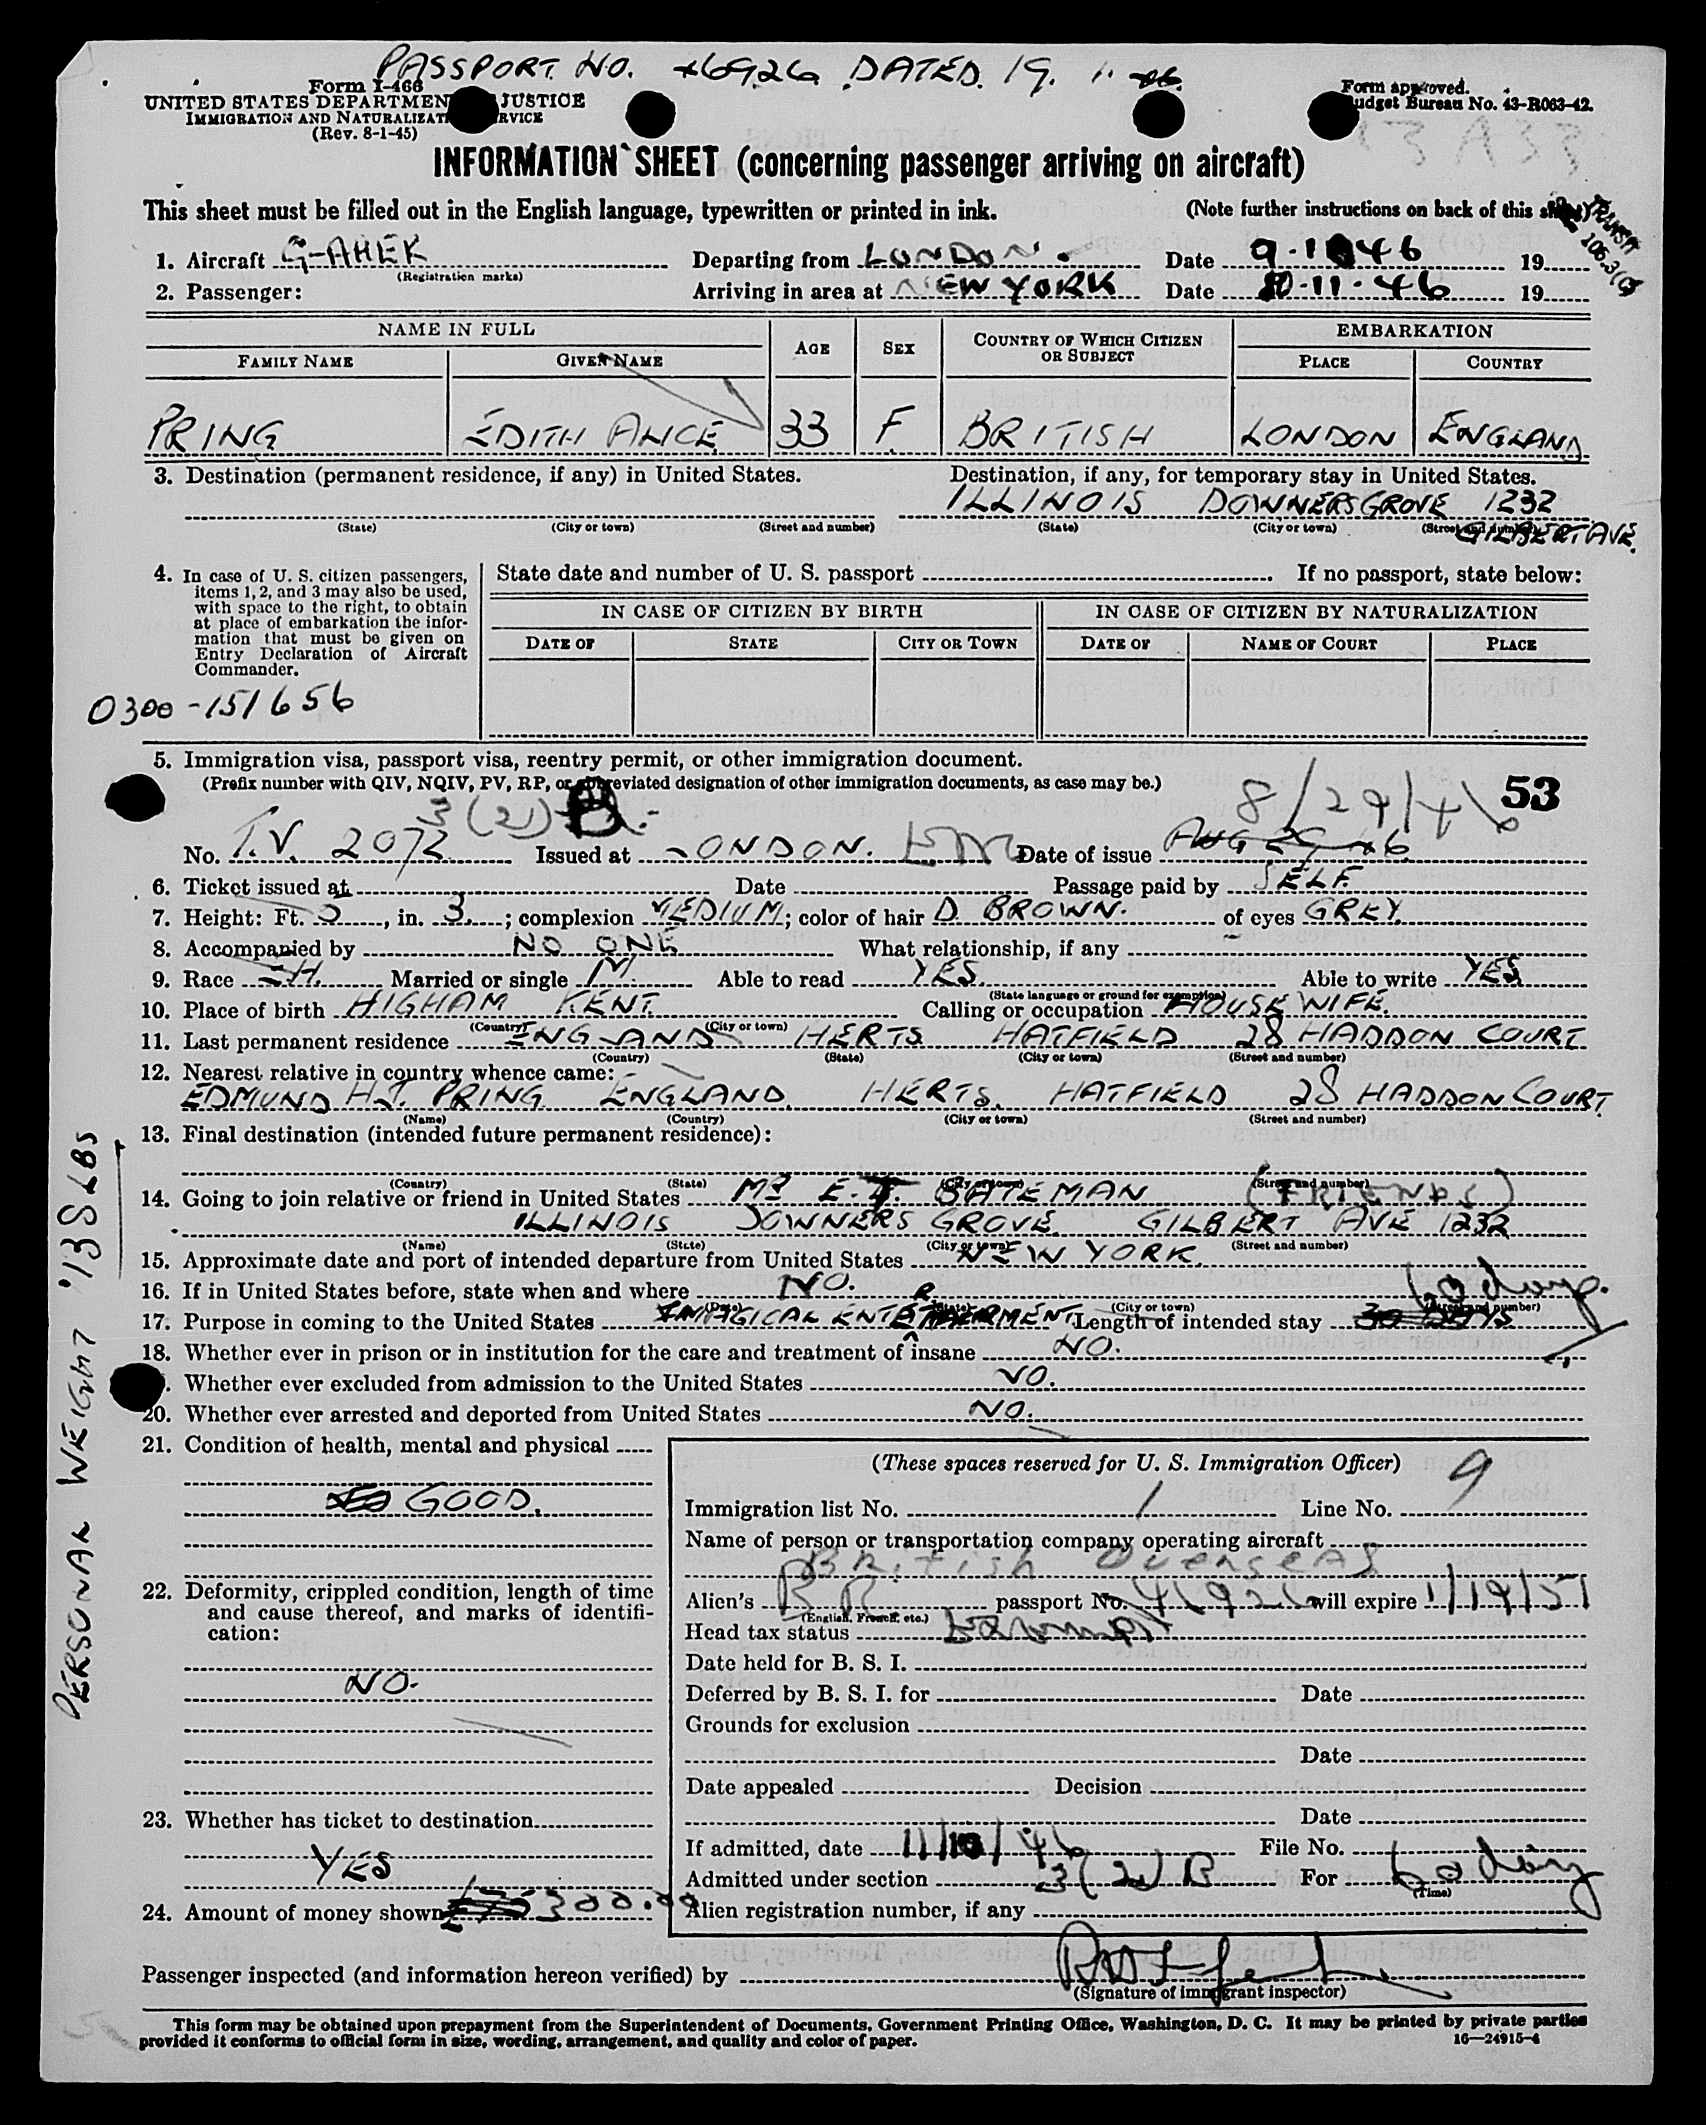 PASSPORT NO. 46926 DATED. 19. 1. 46.
Form I-466
UNITED STATES DEPARTMENT JUSTICE
IMMIGRATION AND NATURALIZATION SERVICE
(Rev. 8-1-45)
Form approved.
Budget Bureau No. 43-R063-42.
INFORMATION SHEET (concerning passenger arriving on aircraft)
This sheet must be filled out in the English language, typewritten or printed in ink. (Note further instructions on back of this sheet)
TRANSIT
1. Aircraft G-AHEK Departing from LONDON. Date 19
(Registration marks)
2. Passenger: Arriving in area at NEW YORK Date 10.11.46 19
NAME IN FULL AGE SEX COUNTRY OF WHICH CITIZEN OR SUBJECT EMBARKATION
FAMILY NAME GIVEN NAME PLACE COUNTRY
PRING EDITH ALICE 33 F. BRITISH LONDON ENGLAND
3. Destination (permanent residence, if any) in United States. Destination, if any, for temporary stay in United States.
ILLINOIS DOWNERS GROVE 1232
(State) (City or town) (Street and number) (State) (City or town) (Street and number)
GILBERT AVE.
4. In case of U. S. citizen passengers,
items 1, 2, and 3 may also be used,
with space to the right, to obtain
at place of embarkation the infor-
mation that must be given on
Entry Declaration of Aircraft
Commander.
State date and number of U. S. passport . If no passport, state below:
IN CASE OF CITIZEN BY BIRTH IN CASE OF CITIZEN BY NATURALIZATION
DATE OF STATE CITY OR TOWN DATE OF NAME OF COURT PLACE
0300-151656
5. Immigration visa, passport visa, reentry permit, or other immigration document.
(Prefix number with QIV, NQIV, PV, RP, or abbreviated designation of other immigration documents, as case may be.)
53
3(2) 8/29/46
No. T.V. 2072 Issued at LONDON. Date of issue AUG 29 46
6. Ticket issued at Date Passage paid by SELF.
7. Height: Ft. 5, in. 3.; complexion MEDIUM; color of hair D. BROWN. of eyes GREY.
8. Accompanied by NO ONE What relationship, if any –
9. Race Married or single M. Able to read YES. Able to write YES.
(State language or ground for exemption)
10. Place of birth HIGHAM KENT. Calling or occupation HOUSEWIFE.
(Country) (City or town)
11. Last permanent residence ENGLAND HERTS HATFIELD 28 HADDON COURT
(Country) (State) (City or town) (Street and number)
12. Nearest relative in country whence came:
EDMUND H.J. PRING ENGLAND. HERTS. HATFIELD 28 HADDON COURT.
(Name) (Country) (City or town) (Street and number)
13. Final destination (intended future permanent residence):
(Country) (State) (City or town) (Street and number)
14. Going to join relative or friend in United States MR E.J. BATEMAN (FRIENDS)
ILLINOIS DOWNERS GROVE. GILBERT AVE 1232
(Name) (State) (City or town) (Street and number)
15. Approximate date and port of intended departure from United States NEW YORK.
16. If in United States before, state when and where NO.
(Date) (State) (City or town) (Street and number)
60 days.
17. Purpose in coming to the United States Length of intended stay 30 DAYS
18. Whether ever in prison or in institution for the care and treatment of insane NO.
. Whether ever excluded from admission to the United States NO.
20. Whether ever arrested and deported from United States NO.
21. Condition of health, mental and physical
GOOD.
22. Deformity, crippled condition, length of time
and cause thereof, and marks of identifi-
cation:
NO.
23. Whether has ticket to destination
YES
24. Amount of money shown 300.00
(These spaces reserved for U. S. Immigration Officer)
Immigration list No. 1 Line No. 9
Name of person or transportation company operating aircraft
British Overseas
Alien's BR passport No. 46926 will expire 1/19/51
(English, French, etc.)
Head tax status Exempt
Date held for B. S. I.
Deferred by B. S. I. for Date
Grounds for exclusion
Date
Date appealed Decision
Date
If admitted, date 11/10/46 File No.
Admitted under section 3(2)B For 60 days
(Time)
Alien registration number, if any
Passenger inspected (and information hereon verified) by
(Signature of immigrant inspector)
This form may be obtained upon prepayment from the Superintendent of Documents, Government Printing Office, Washington, D. C. It may be printed by private parties
provided it conforms to official form in size, wording, arrangement, and quality and color of paper. 16—24915-4
PERSONAL WEIGHT 138 LBS